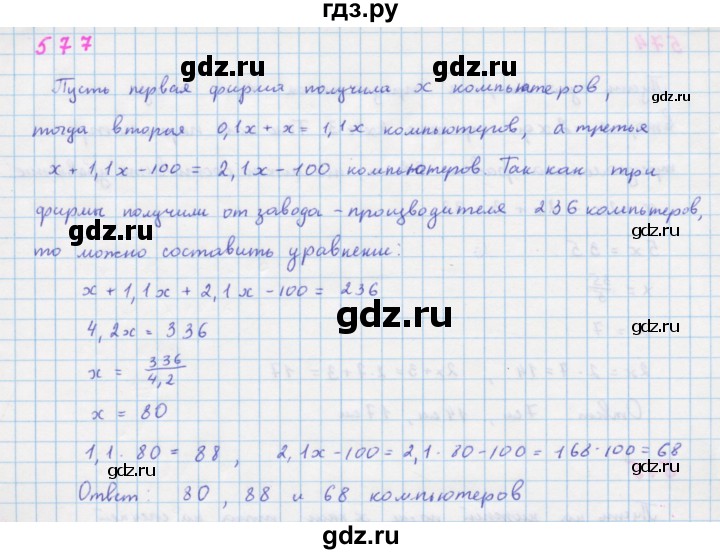 гдз.ру
577
gdz.ru gdz.ru
Пусть первая фирма получила x компьютеров,
тогда вторая 0,1x + x = 1,1x компьютеров, а третья
x + 1,1x - 100 = 2,1x - 100 компьютеров. Так как три
gdz.ru
фирмы получили от завода - производителя 236 компьтеров,
gdz.ru gdz.ru
то можно составить уравнение:
x + 1,1x + 2,1x - 100 = 236
gdz.ru
4,2x = 336
x = 336/4,2
gdz.ru
x = 80
gdz.ru
1,1 · 80 = 88, 2,1x - 100 = 2,1 · 80 - 100 = 168 - 100 = 68
gdz.ru gdz.ru
Ответ: 80, 88 и 68 компьютеров
gdz.ru
gdz.ru